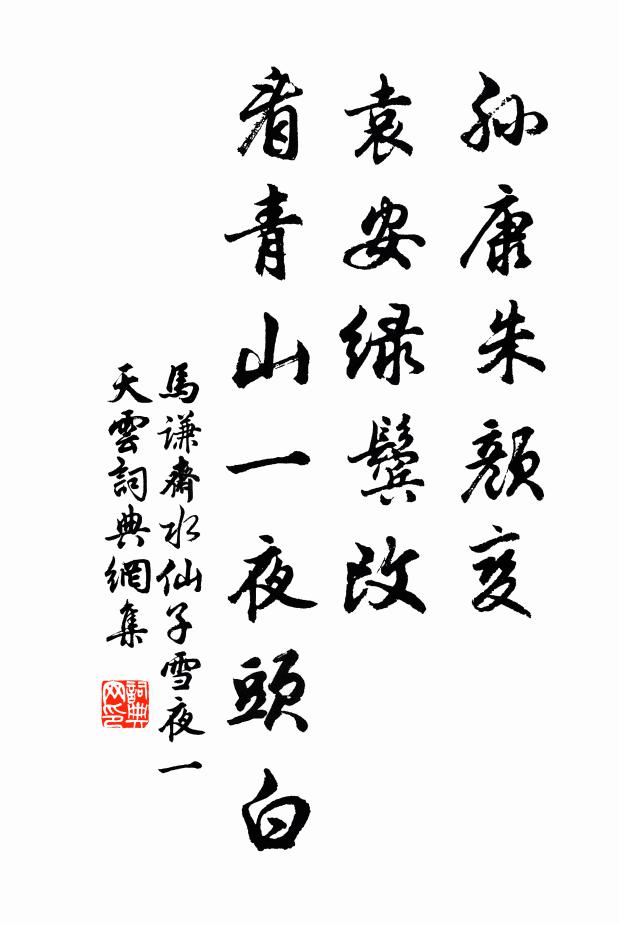 孙康朱颜变
袁安绿鬓改
看青山一夜頭白
馬谦齋水仙子雪夜一
天雲詞典網集
詞典
网印